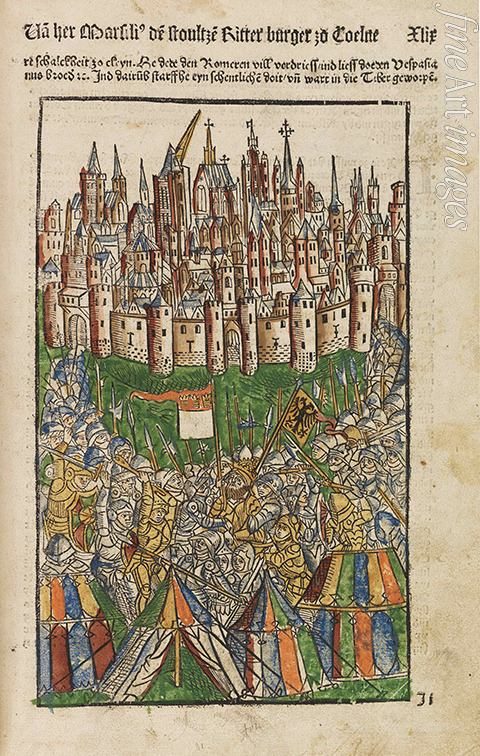 Uā her Marsili⁹ dē stoultzē Ritter burger zo Coelne XLIX
re schalckheit zo cleyn. He dede den Romeren vill verdriess ind lieff doeden Vespasia
nus broed ⁊c. Ind darūb starff he eyn schentlichē doit/ vn̄ wart in die Tyber geworpē.
fine Art images
JI